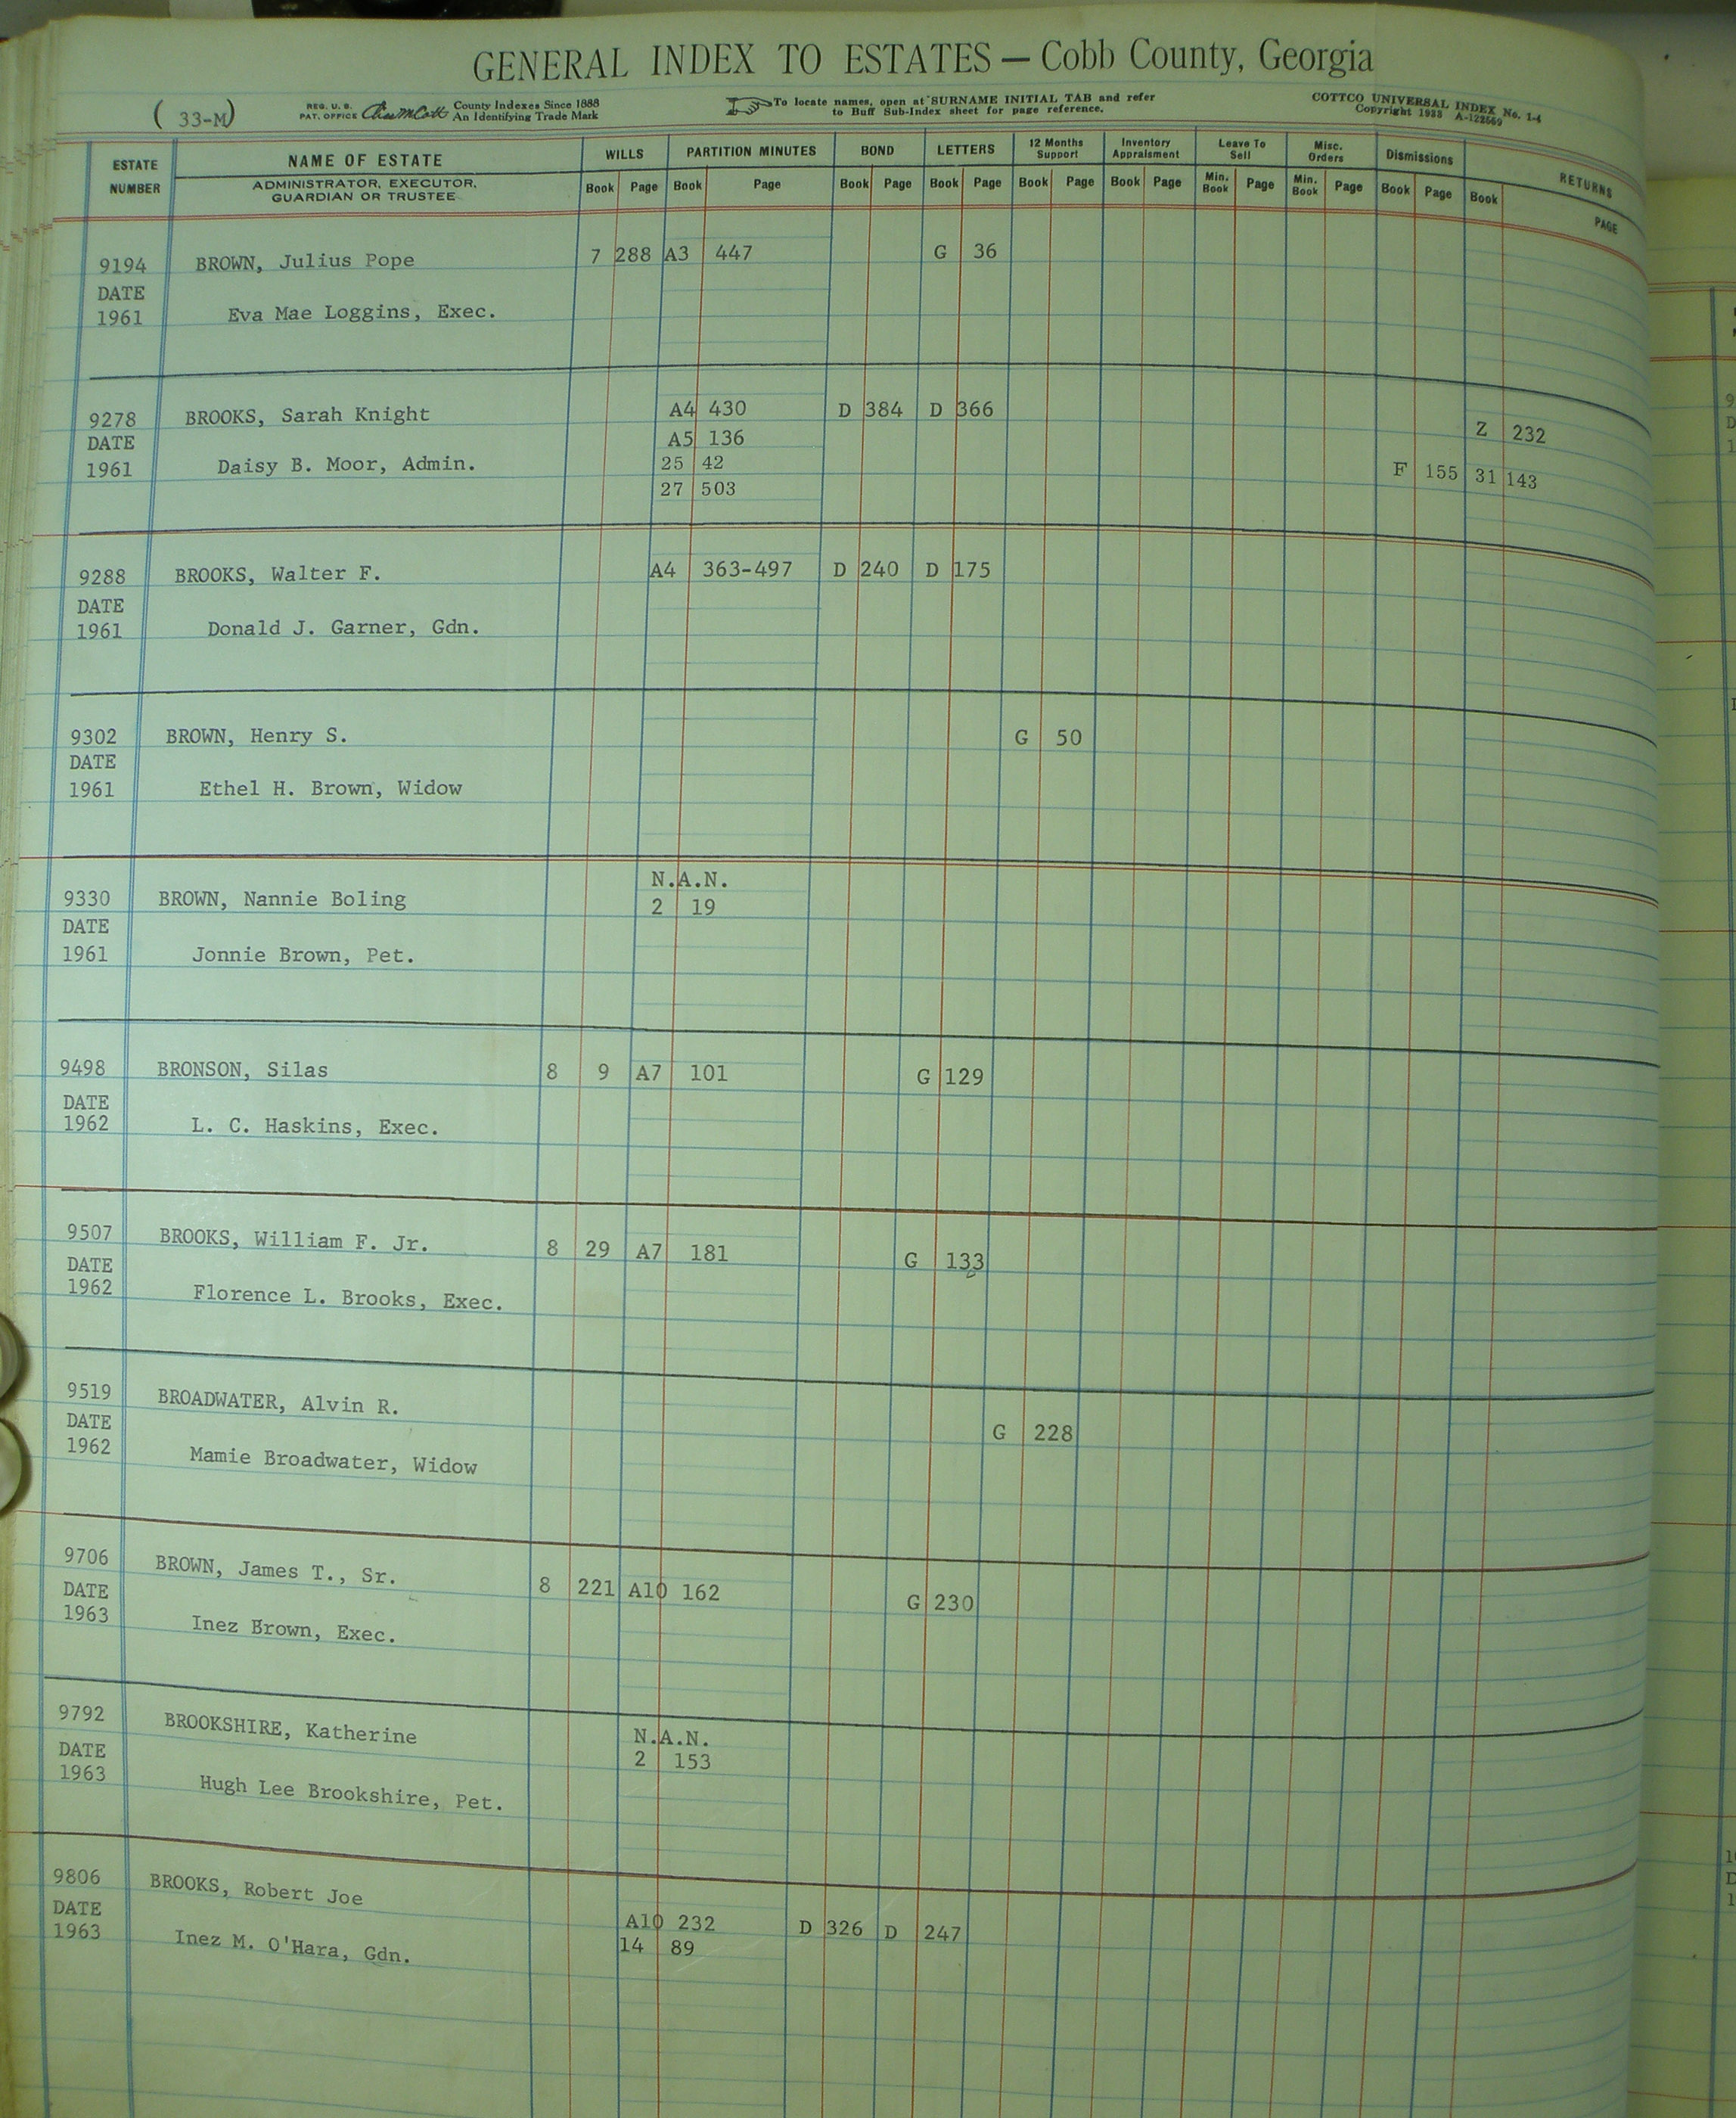 GENERAL INDEX TO ESTATES — Cobb County, Georgia
(33-M) REG. U. S. PAT. OFFICE County Indexes Since 1888 An Identifying Trade Mark
To locate names, open at SURNAME INITIAL TAB and refer to Buff Sub-Index sheet for page reference.
COTTCO UNIVERSAL INDEX No. 1-4
Copyright 1938 A-122569
ESTATE NUMBER NAME OF ESTATE WILLS PARTITION MINUTES BOND LETTERS 12 Months Support Inventory Appraisment Leave To Sell Misc. Orders Dismissions RETURNS
ADMINISTRATOR, EXECUTOR, GUARDIAN OR TRUSTEE Book Page Book Page Book Page Book Page Book Page Book Page Min. Book Page Min. Book Page Book Page Book PAGE
9194 BROWN, Julius Pope 7 288 A3 447 G 36
DATE
1961 Eva Mae Loggins, Exec.
9278 BROOKS, Sarah Knight A4 430 D 384 D 366
DATE A5 136 Z 232
1961 Daisy B. Moor, Admin. 25 42 F 155 31 143
27 503
9288 BROOKS, Walter F. A4 363-497 D 240 D 175
DATE
1961 Donald J. Garner, Gdn.
9302 BROWN, Henry S. G 50
DATE
1961 Ethel H. Brown, Widow
N.A.N.
9330 BROWN, Nannie Boling 2 19
DATE
1961 Jonnie Brown, Pet.
9498 BRONSON, Silas 8 9 A7 101 G 129
DATE
1962 L. C. Haskins, Exec.
9507 BROOKS, William F. Jr. 8 29 A7 181 G 133
DATE
1962 Florence L. Brooks, Exec.
9519 BROADWATER, Alvin R. G 228
DATE
1962 Mamie Broadwater, Widow
9706 BROWN, James T., Sr. 8 221 A10 162 G 230
DATE
1963 Inez Brown, Exec.
9792 BROOKSHIRE, Katherine N.A.N.
DATE 2 153
1963 Hugh Lee Brookshire, Pet.
9806 BROOKS, Robert Joe
DATE A10 232 D 326 D 247
1963 Inez M. O'Hara, Gdn. 14 89